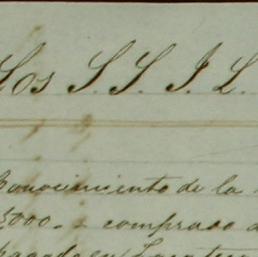 Los S. S. J. L.
Conocimiento de la
5000.- comprado
pagado en